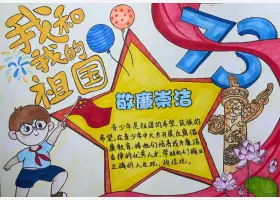 我和
我的
祖国
73
敬廉崇洁
青少年是祖国的希望,民族的
希望,在青少年中大力开展反腐倡
廉教育,将他们培养成为廉洁
自律的优秀人才,帮助他们树立
正确的人生观、价值观。